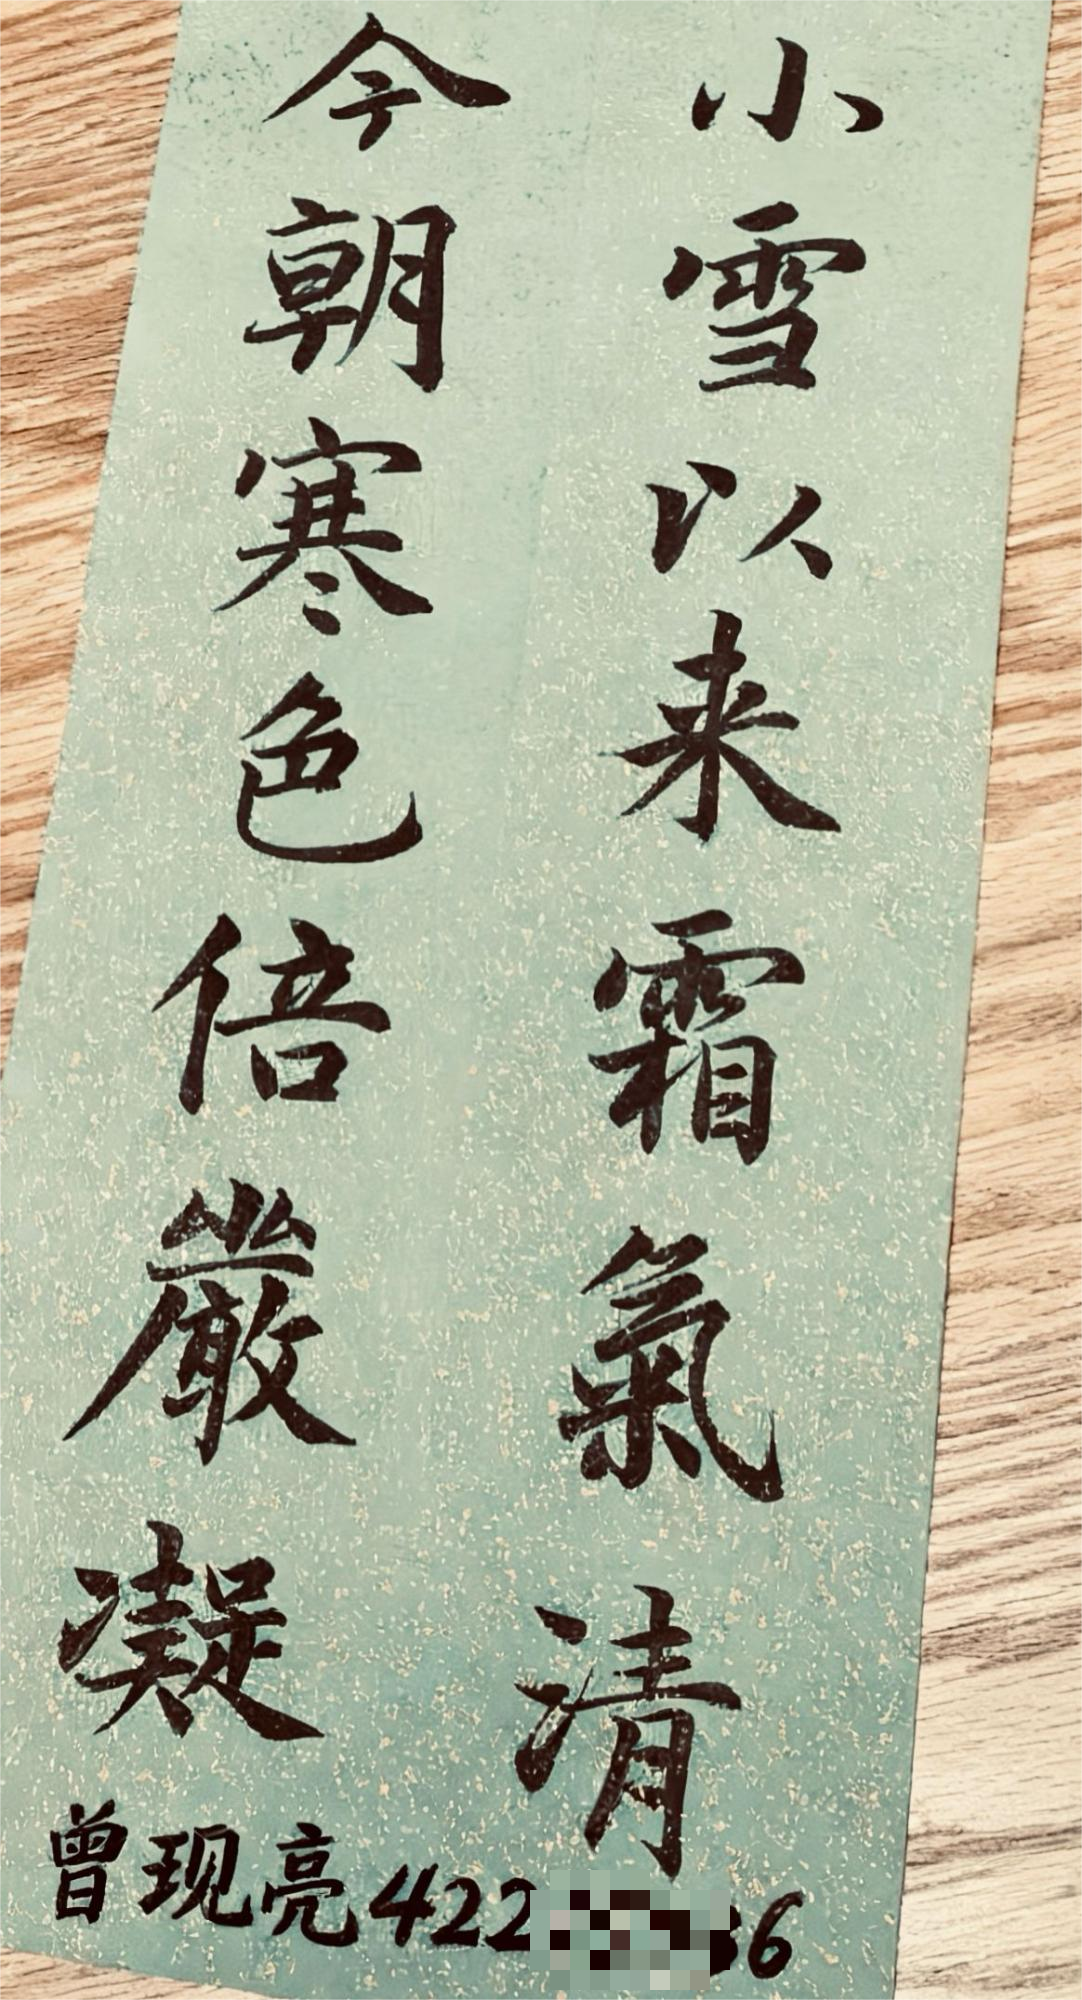 小雪以来霜氣清
今朝寒色倍嚴凝
曾现亮422 36